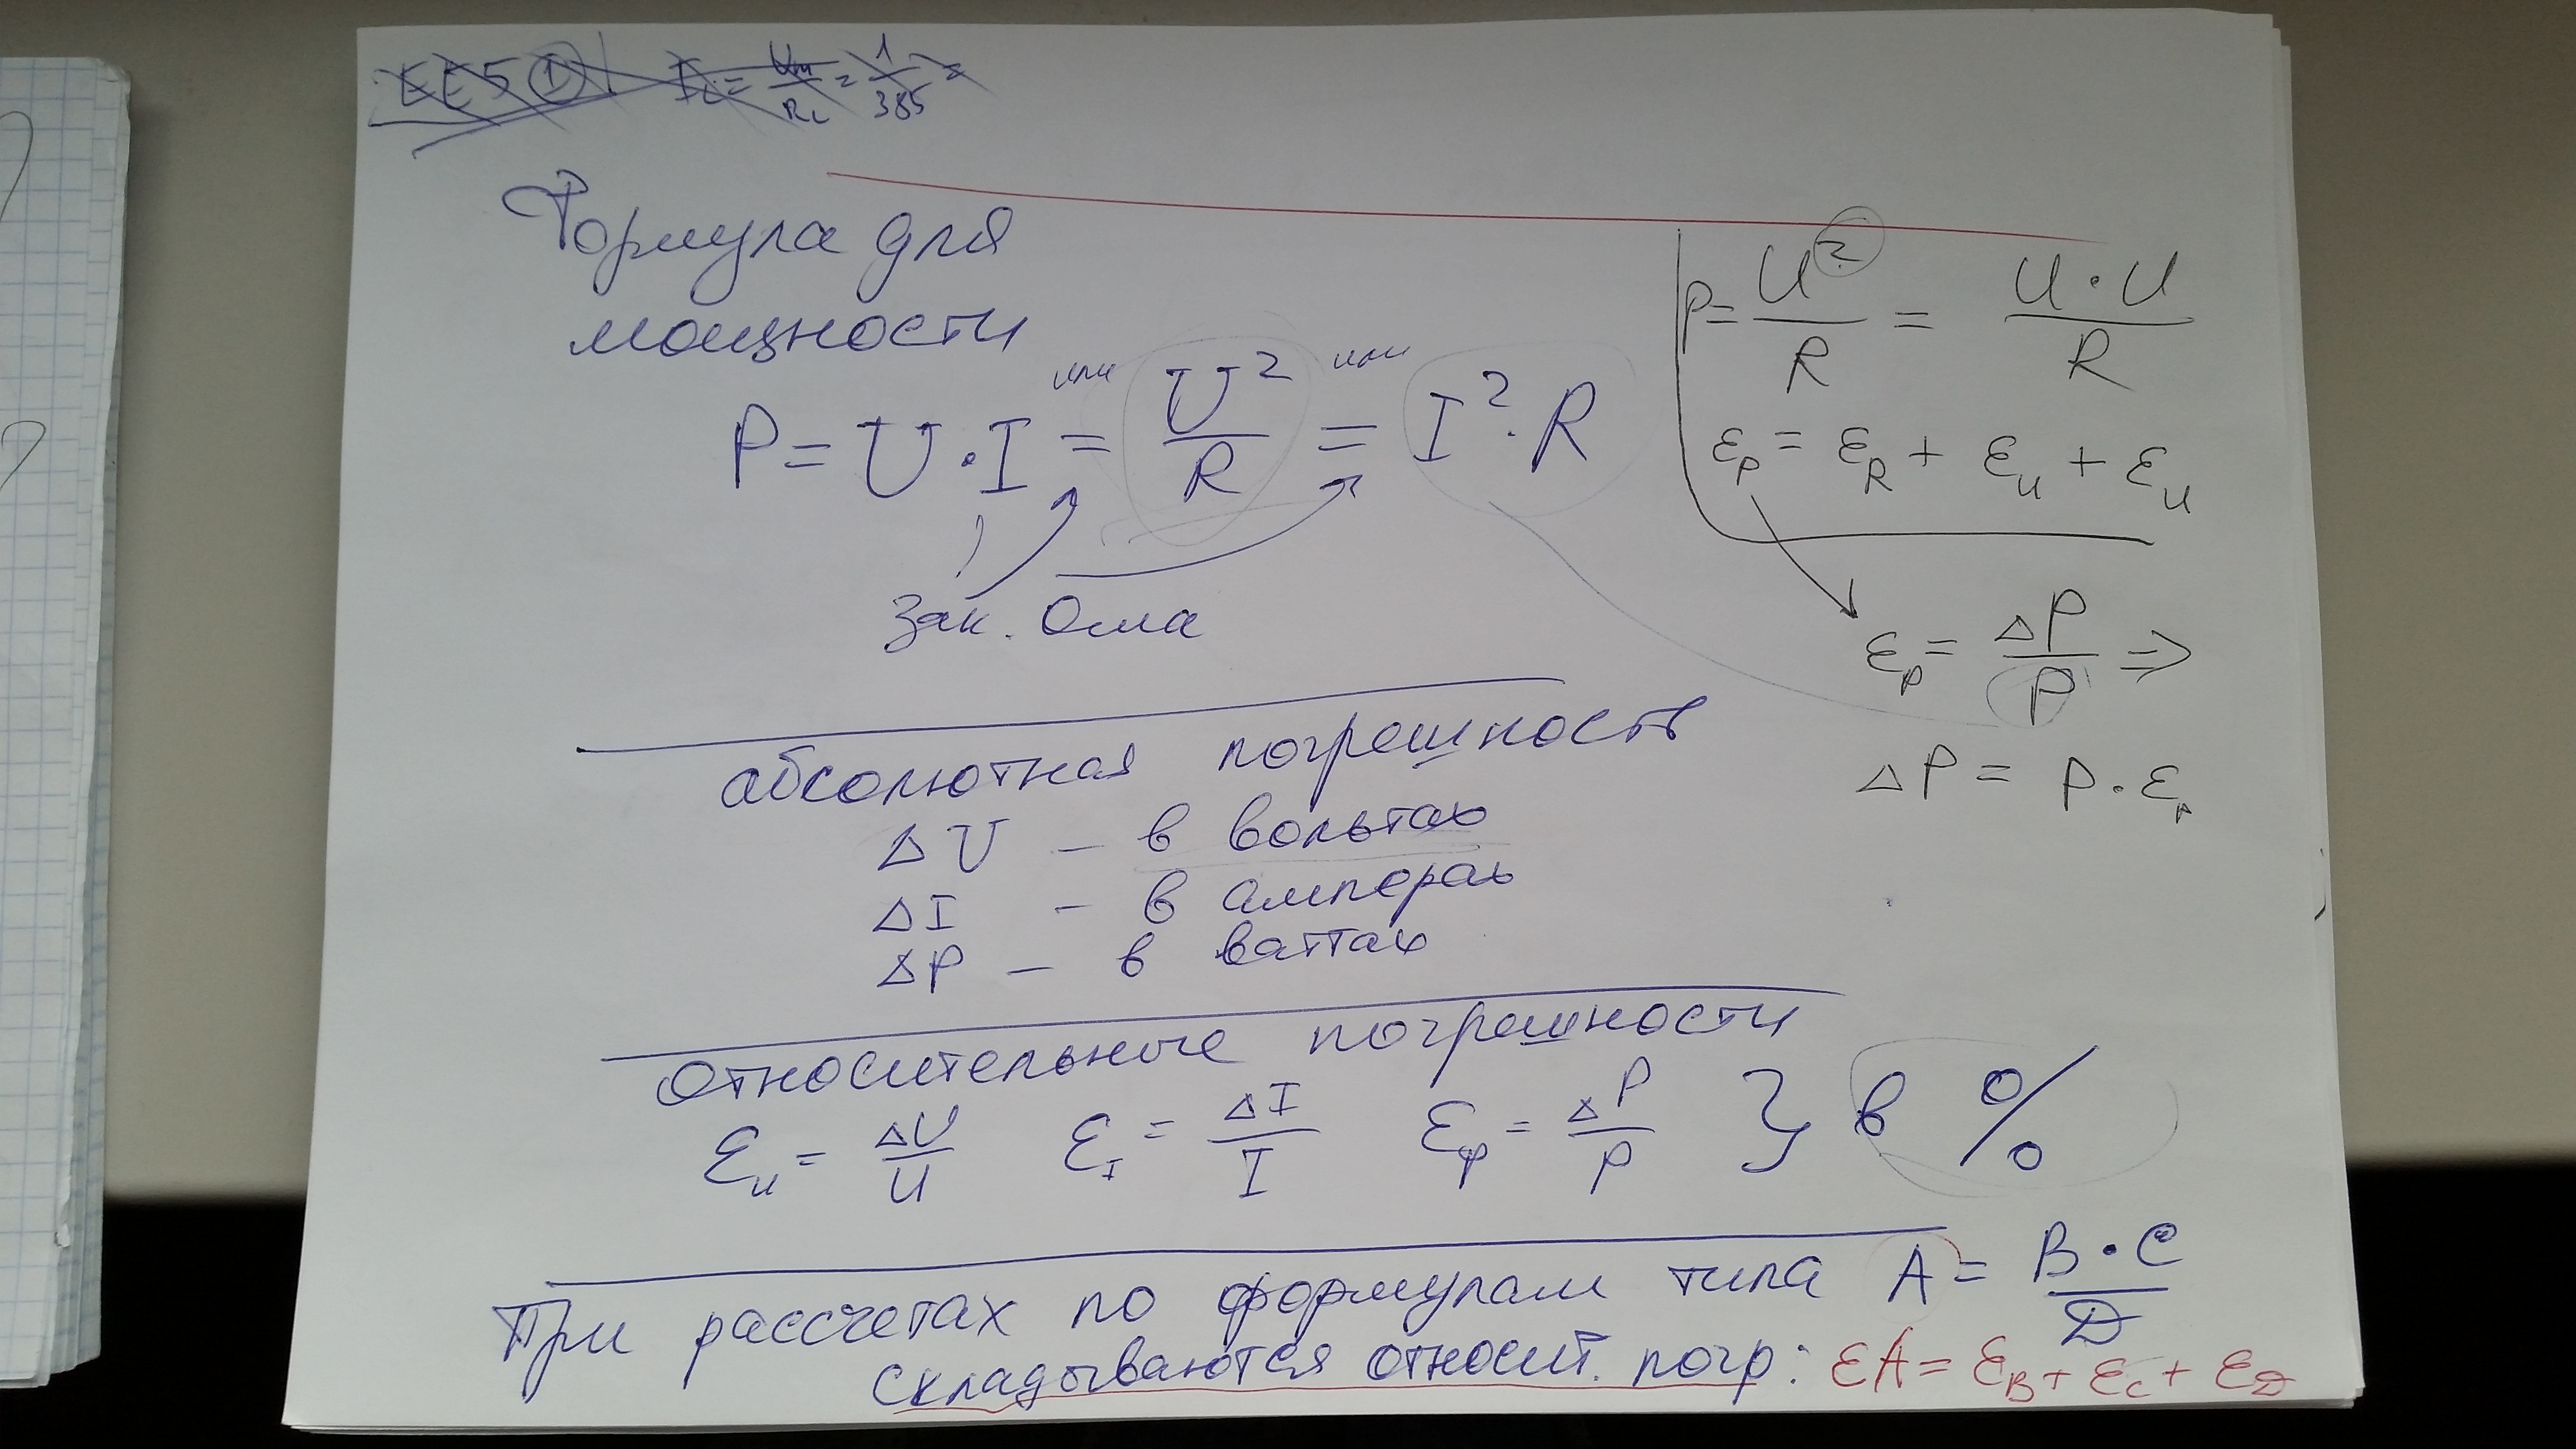 EE5 ① I_L = U_m / R_L = 1 / 385 =
Формула для
мощности
P = U · I = U² / R = I² · R
или или
Зак. Ома
P = U² / R = U · U / R
ε_P = ε_R + ε_U + ε_U
ε_P = ΔP / P ⇒
ΔP = P · ε_P
абсолютная погрешность
ΔU – в вольтах
ΔI – в амперах
ΔP – в ваттах
относительные погрешности
ε_U = ΔU / U ε_I = ΔI / I ε_P = ΔP / P } в %
При рассчетах по формулам типа A = B · C / D
складываются относит. погр: εA = ε_B + ε_C + ε_D